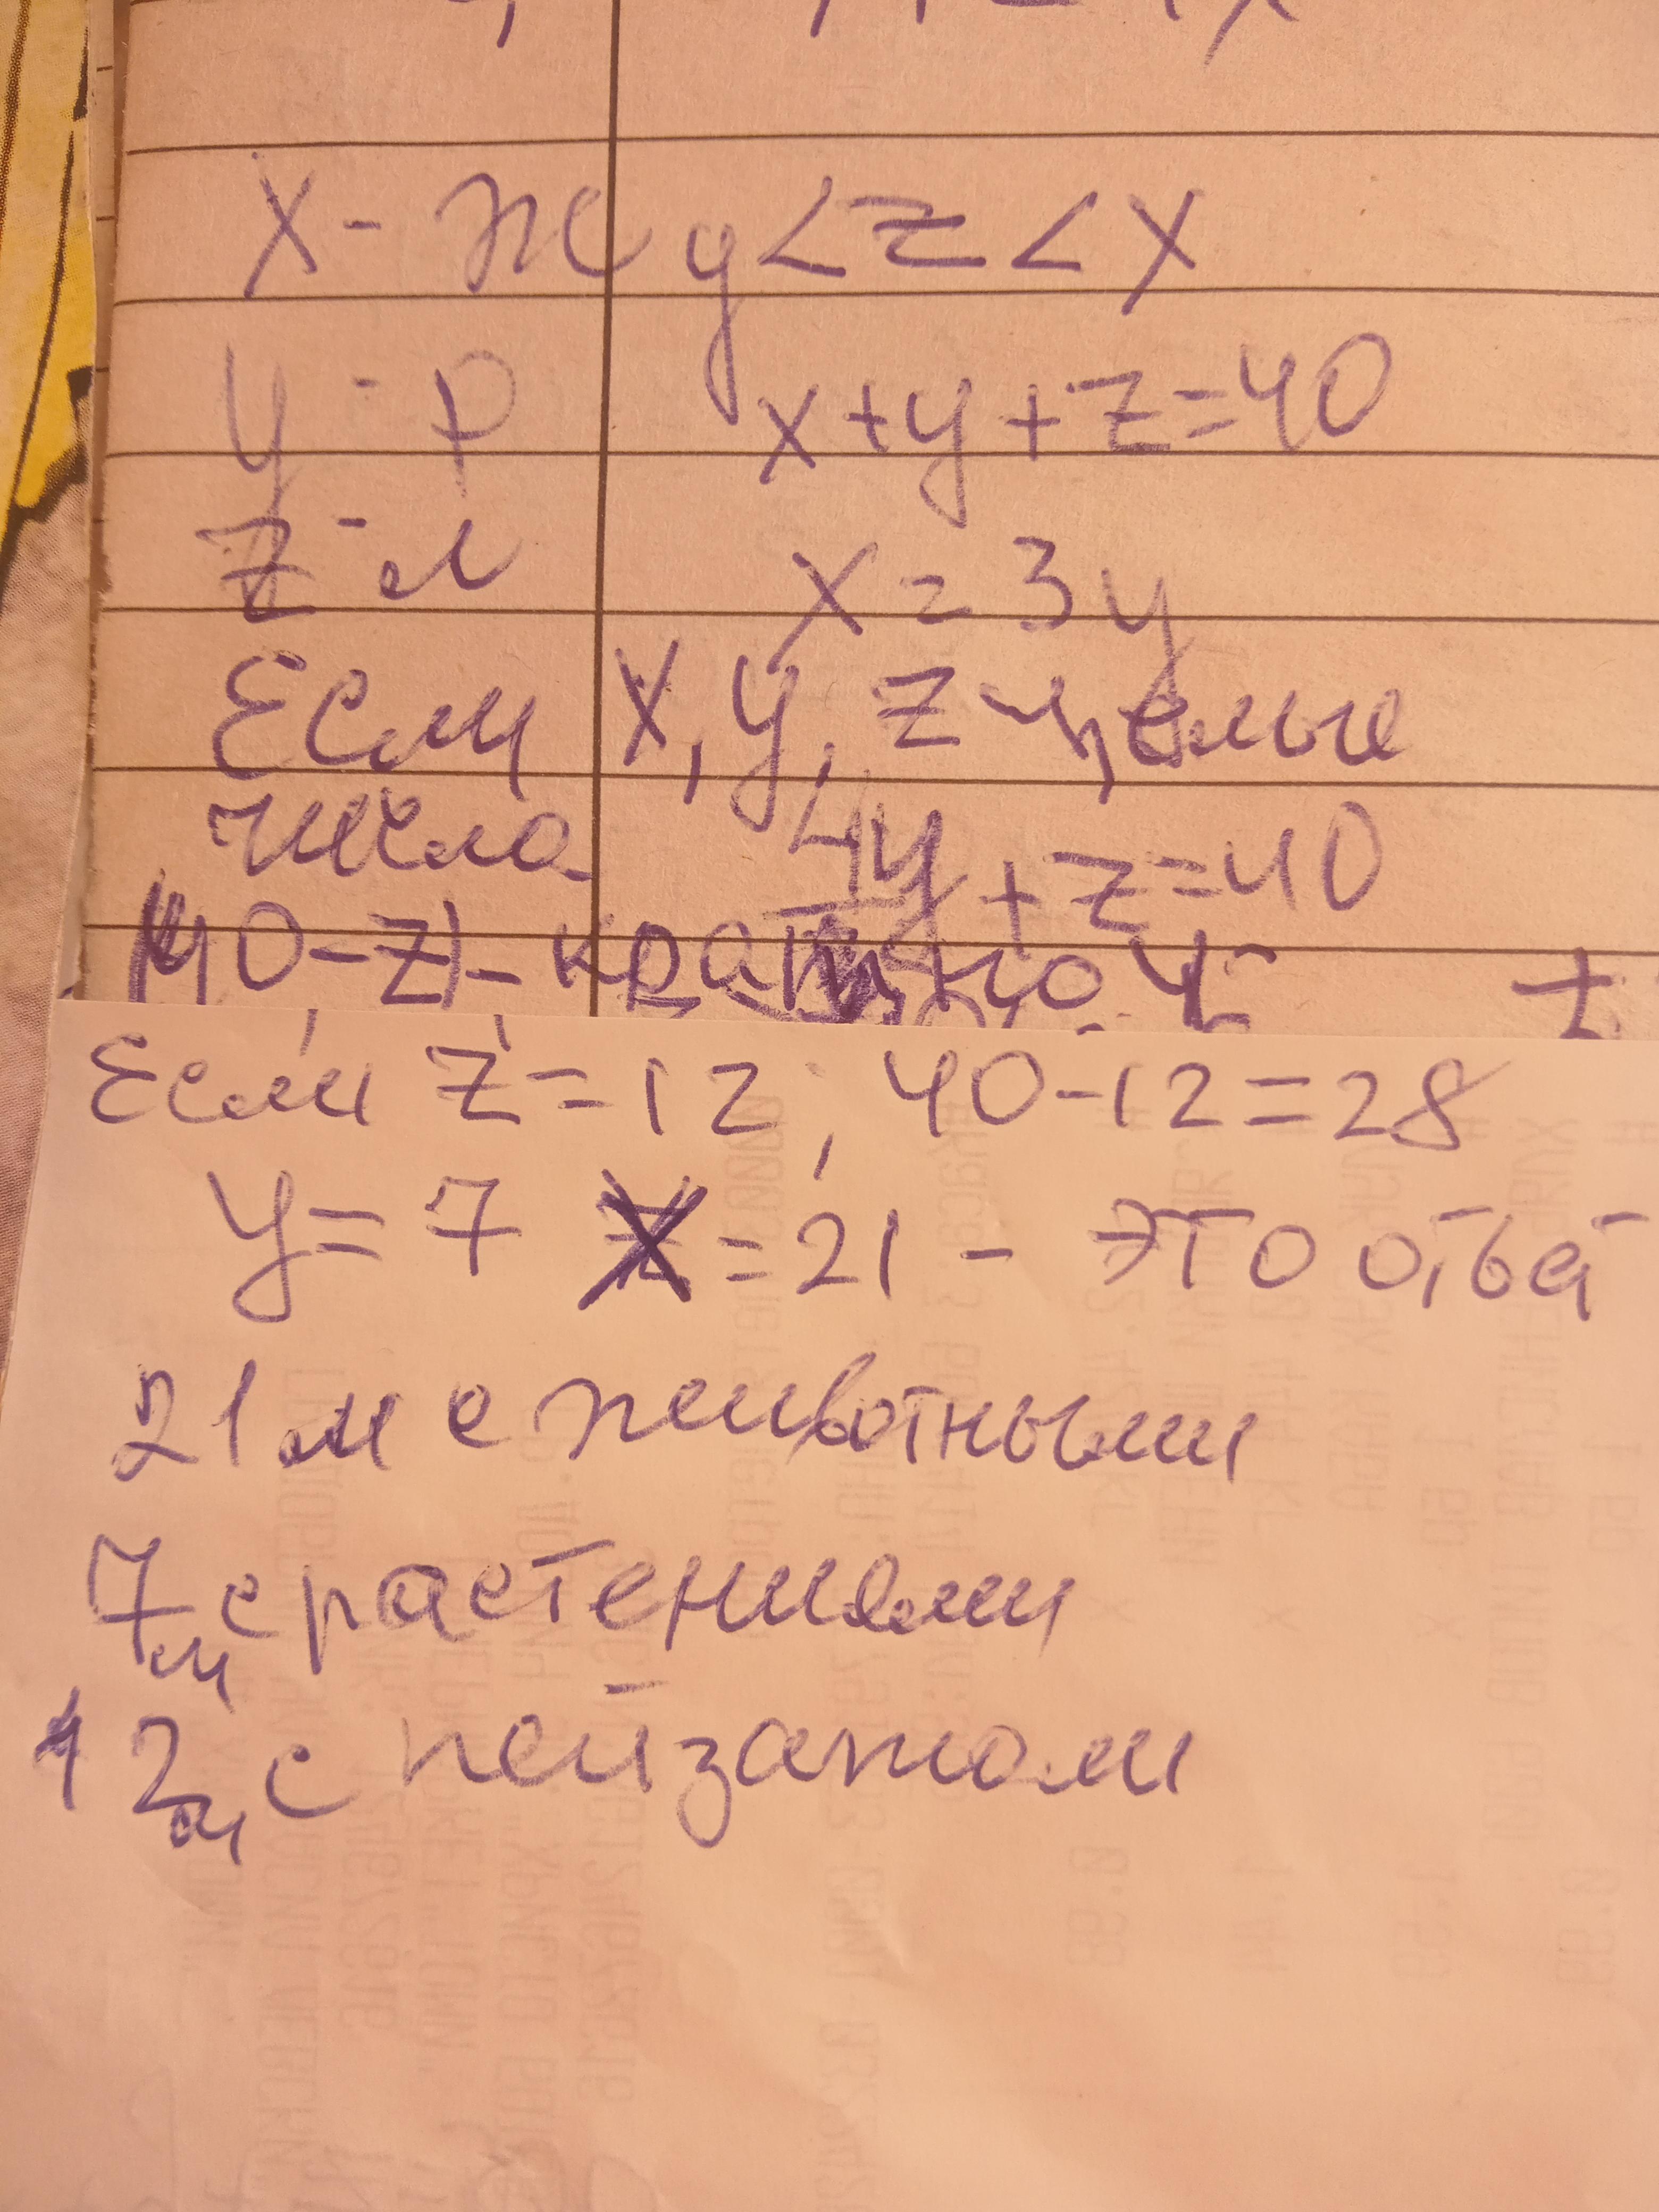 x - ж y < z < x
y - р x + y + z = 40
z - м x = 3y
Если x, y, z целые
числа 4y + z = 40
(40 - z) - кратно 4
Если z = 12, 40 - 12 = 28
y = 7 x = 21 - это ответ
21 м с животными
7 м с растениями
12 м с пейзажом